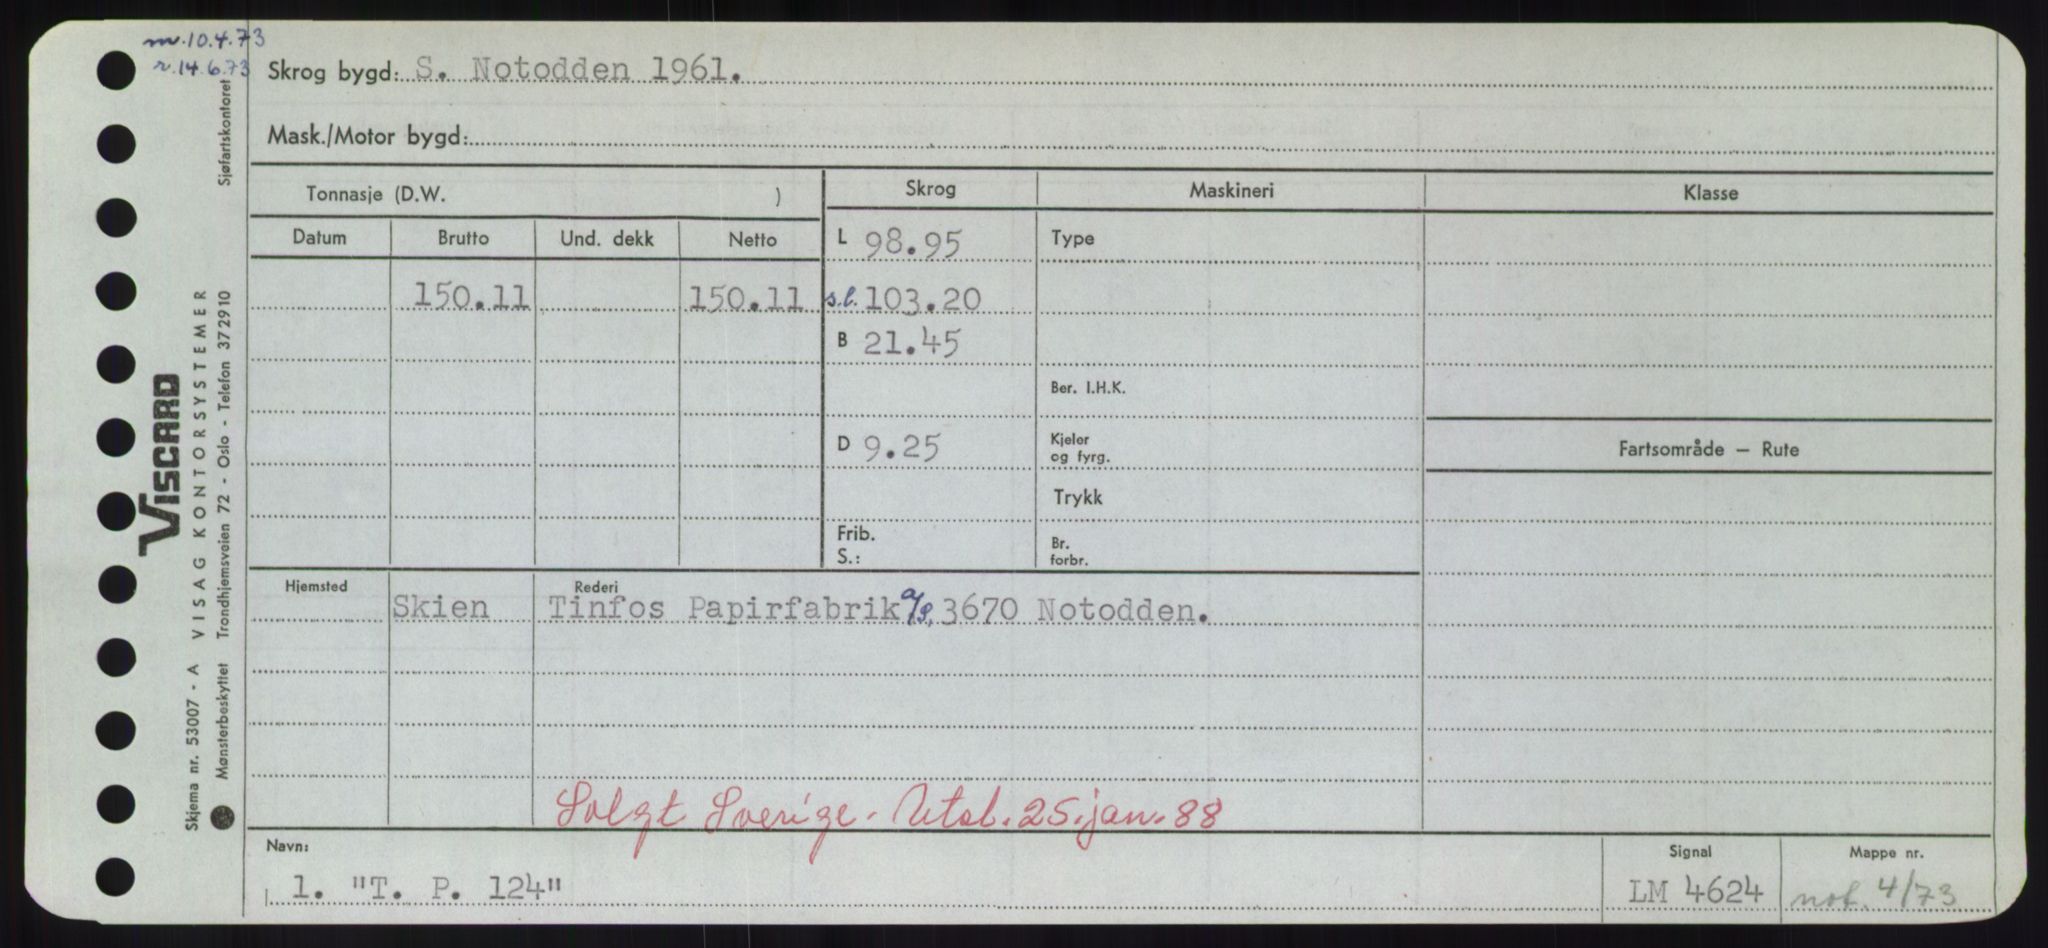 m. 10.4.73
r. 14.6.73
Skrog bygd: S. Notodden 1961.
Mask./Motor bygd:
Tonnasje (D.W. )
Skrog
Maskineri
Klasse
Datum
Brutto
Und. dekk
Netto
L 98.95
Type
150.11
150.11
s.l. 103.20
B 21.45
Ber. I.H.K.
D 9.25
Kjeler
og fyrg.
Fartsområde — Rute
Trykk
Frib.
S.:
Br.
forbr.
Hjemsted
Rederi
Skien
Tinfos Papirfabrik a/s, 3670 Notodden.
Solgt Sverige. Utsl. 25. jan. 88
Navn:
Signal
Mappe nr.
1. "T. P. 124"
LM 4624
not. 4/73
Skjema nr. 53007 - A VISAG KONTORSYSTEMER
Mønsterbeskyttet Trondhjemsveien 72 - Oslo - Telefon 372910
Sjøfartskontoret
VISCARD